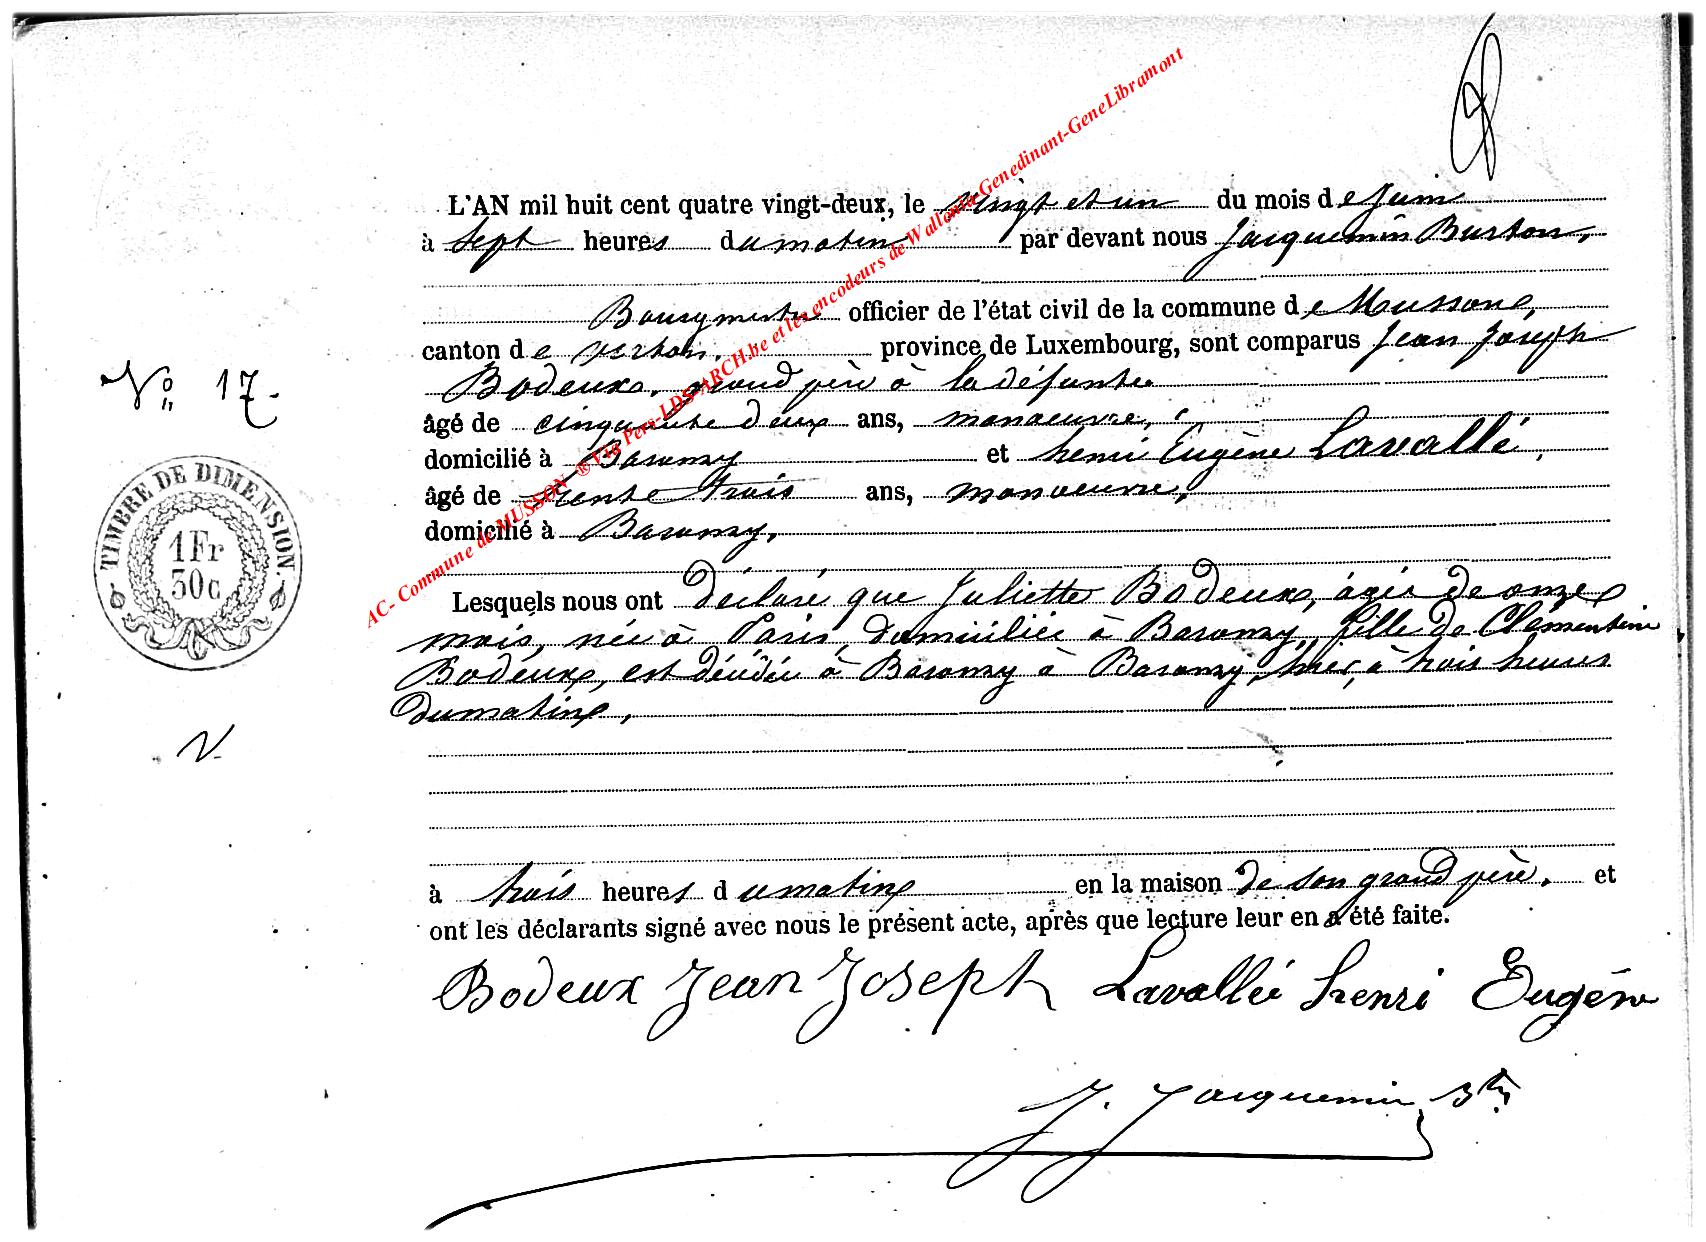 L'AN mil huit cent quatre vingt-deux, le vingt et un du mois de Juin
à sept heures du matin par devant nous Jacquemin Burton,
Bourgmestre officier de l'état civil de la commune de Musson,
canton de virton. province de Luxembourg, sont comparus Jean Joseph
Bodeux, grand père à la défunte
âgé de cinquante deux ans, manoeuvre,
domicilié à Baranzy et henri Eugène Lavallé,
âgé de trente trois ans, manoeuvre,
domicilié à Baranzy,
Lesquels nous ont déclaré que Juliette Bodeux, agée de onze
mois, née à Paris, domiciliée à Baranzy, fille de Clémentine
Bodeux, est décédée à Baranzy à Baranzy, hier, à trois heures
du matin,
à trois heures du matin en la maison de son grand père, et
ont les déclarants signé avec nous le présent acte, après que lecture leur en a été faite.
Bodeux Jean Joseph Lavallée henri Eugéne
J. Jacquemin Btn
No 17.
TIMBRE DE DIMENSION.
1 Fr
30 c
V
AC- Commune de MUSSON ® Via Pers-LDS-ARCH.be et les encodeurs de Wallonia-Genedinant-GeneLibramont